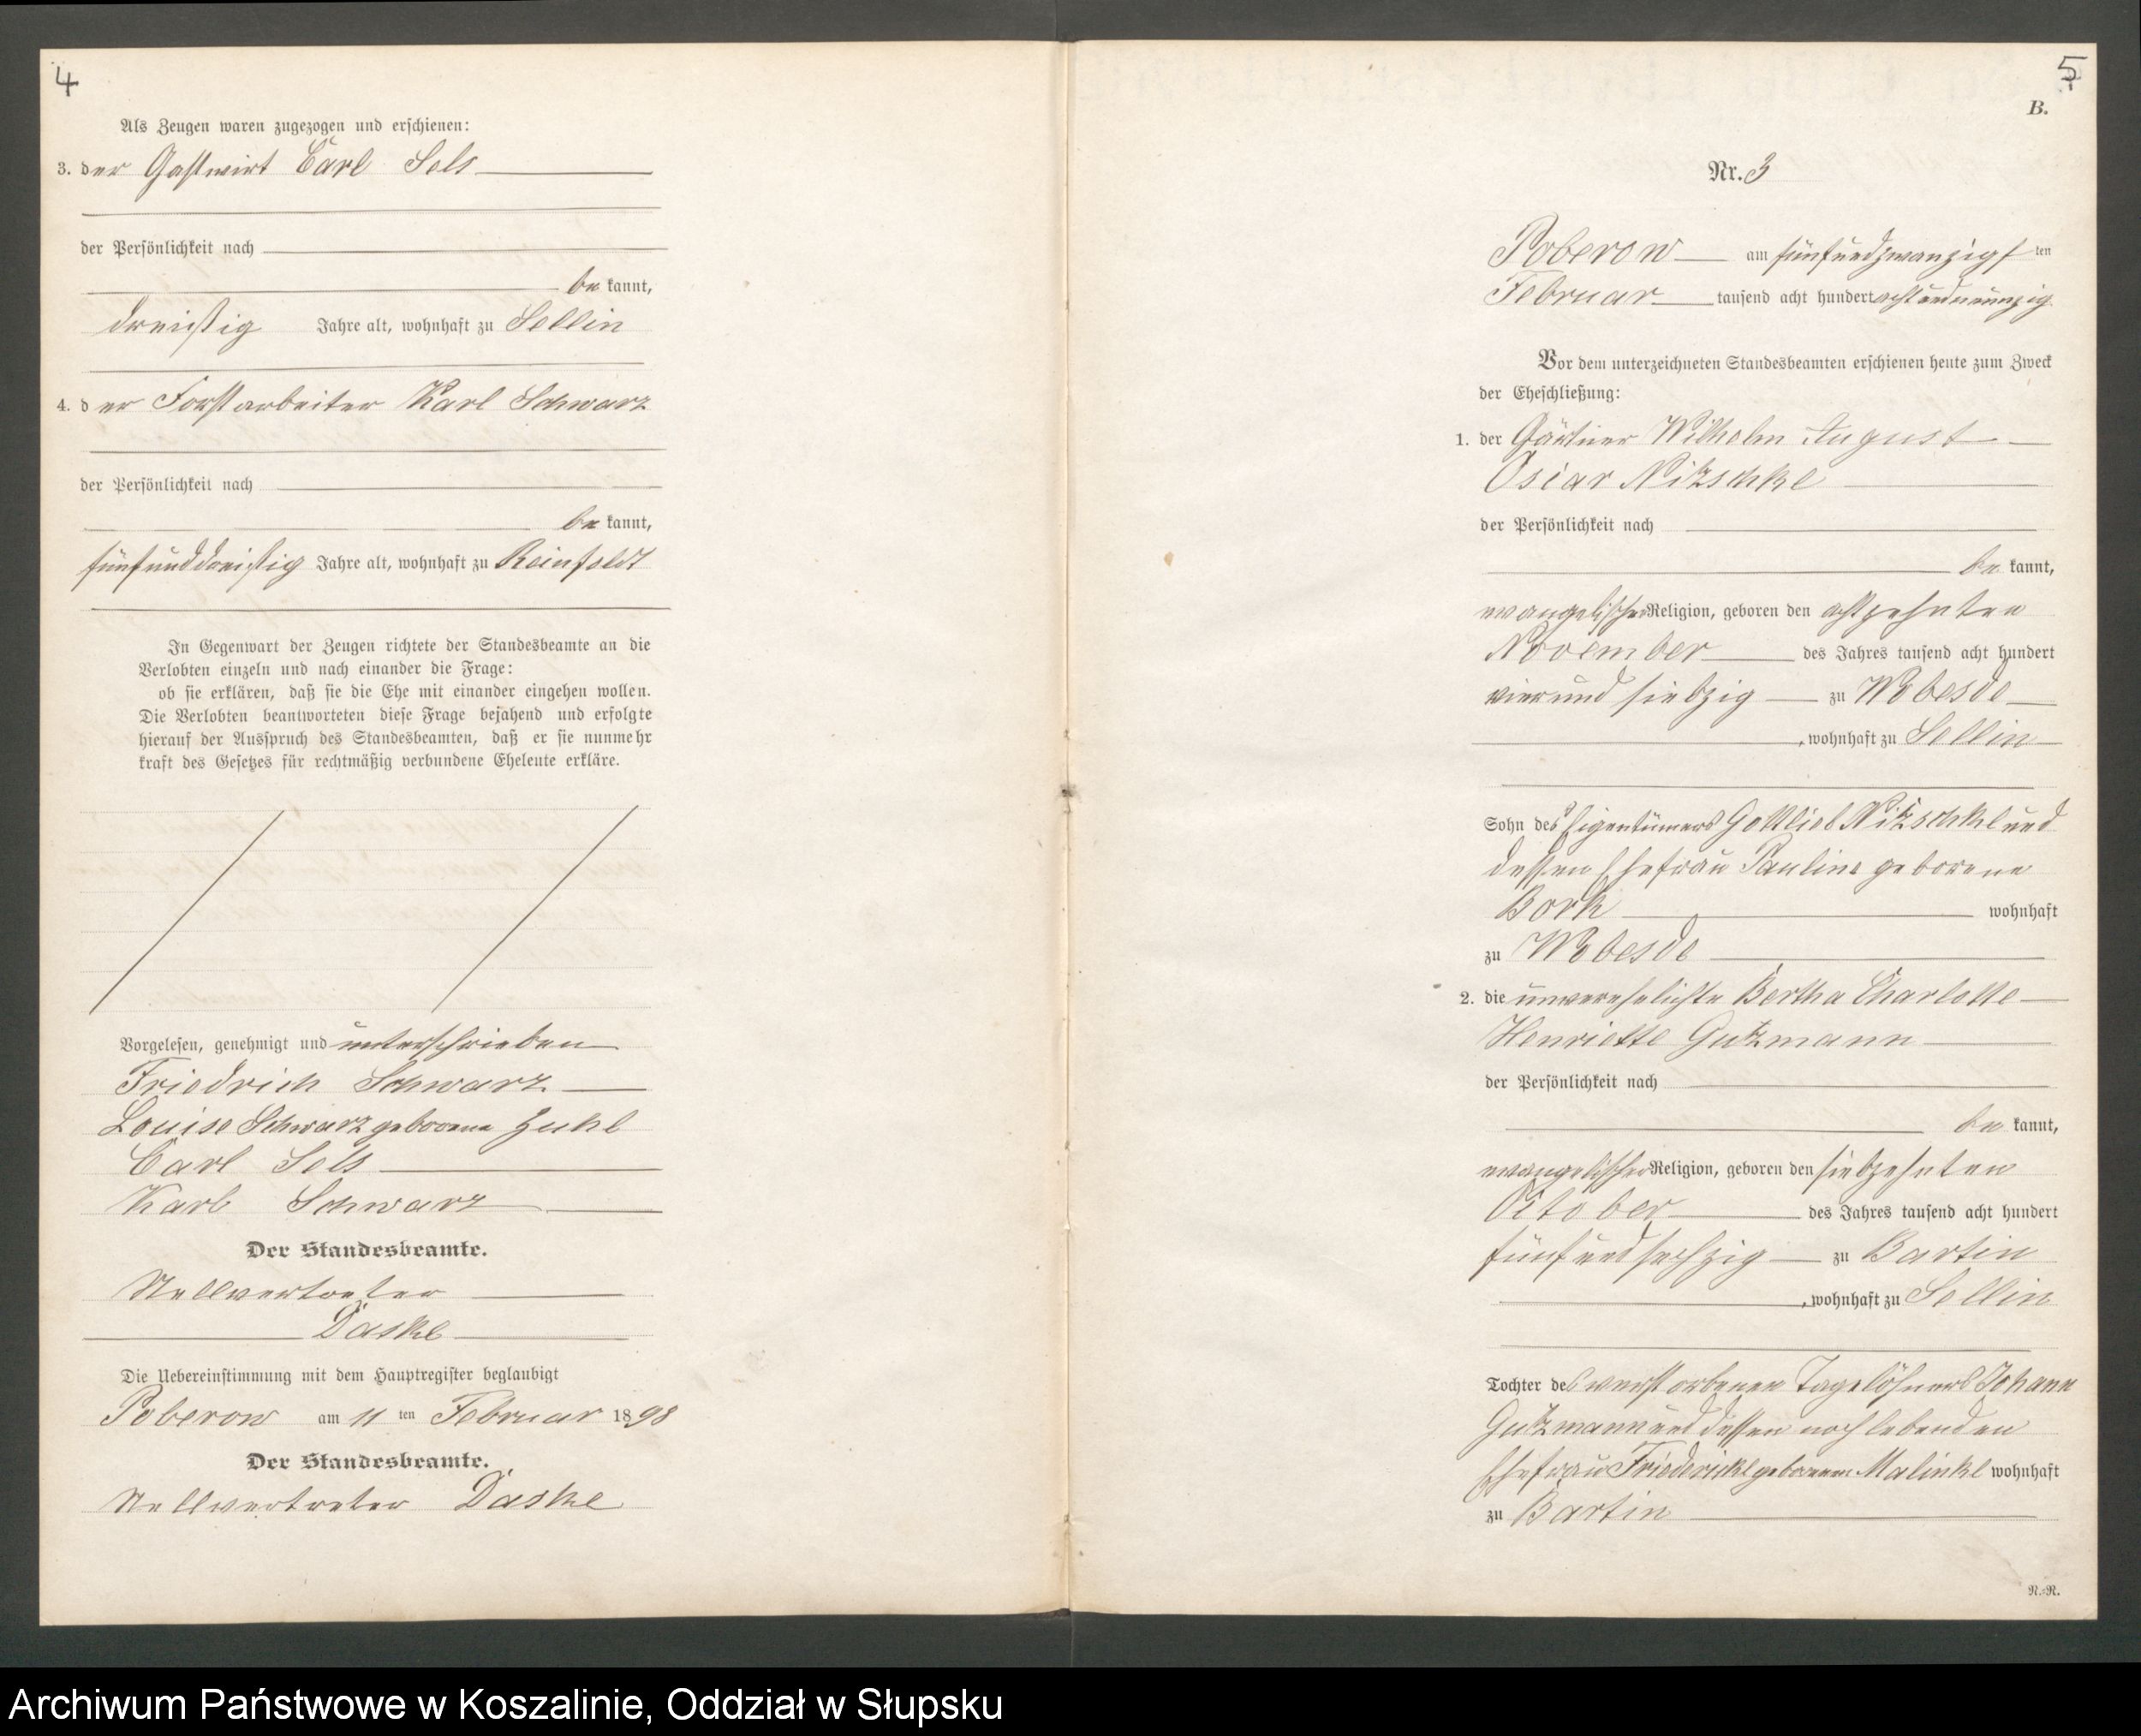 4
Als Zeugen waren zugezogen und erschienen:
3. der Gastwirt Carl Sels
der Persönlichkeit nach
be kannt,
dreissig Jahre alt, wohnhaft zu Sellin
4. der Forstarbeiter Karl Schwarz
der Persönlichkeit nach
be kannt,
fünfunddreissig Jahre alt, wohnhaft zu Reinfeldt
In Gegenwart der Zeugen richtete der Standesbeamte an die
Verlobten einzeln und nach einander die Frage:
ob sie erklären, daß sie die Ehe mit einander eingehen wollen.
Die Verlobten beantworteten diese Frage bejahend und erfolgte
hierauf der Ausspruch des Standesbeamten, daß er sie nunmehr
kraft des Gesetzes für rechtmäßig verbundene Eheleute erkläre.
Vorgelesen, genehmigt und unterschrieben
Friedrich Schwarz
Louise Schwarz geborene Zuhl
Carl Sels
Karl Schwarz
Der Standesbeamte.
Stellvertreter
Daske
Die Uebereinstimmung mit dem Hauptregister beglaubigt
Poberow am 11 ten Februar 1898
Der Standesbeamte.
Stellvertreter Daske
5
B.
Nr. 3
Poberow am fünfundzwanzigsten
Februar tausend acht hundert achtundneunzig
Vor dem unterzeichneten Standesbeamten erschienen heute zum Zweck
der Eheschließung:
1. der Gärtner Wilhelm August
Oscar Nitzschke
der Persönlichkeit nach
be kannt,
evangelischer Religion, geboren den achtzehnten
November des Jahres tausend acht hundert
vierundsiebzig zu Wobesde
, wohnhaft zu Sellin
Sohn des Eigentümers Gottlieb Nitzschke und
dessen Ehefrau Pauline geborene
Bork wohnhaft
zu Wobesde
2. die unverehelichte Bertha Charlotte
Henriette Gutzmann
der Persönlichkeit nach
be kannt,
evangelischer Religion, geboren den siebzehnten
October des Jahres tausend acht hundert
fünfundsechzig zu Bartin
, wohnhaft zu Sellin
Tochter des verstorbenen Tagelöhners Johann
Gutzmann und dessen noch lebenden
Ehefrau Friedericke geborenen Malinke wohnhaft
zu Bartin
N.-R.
Archiwum Państwowe w Koszalinie, Oddział w Słupsku